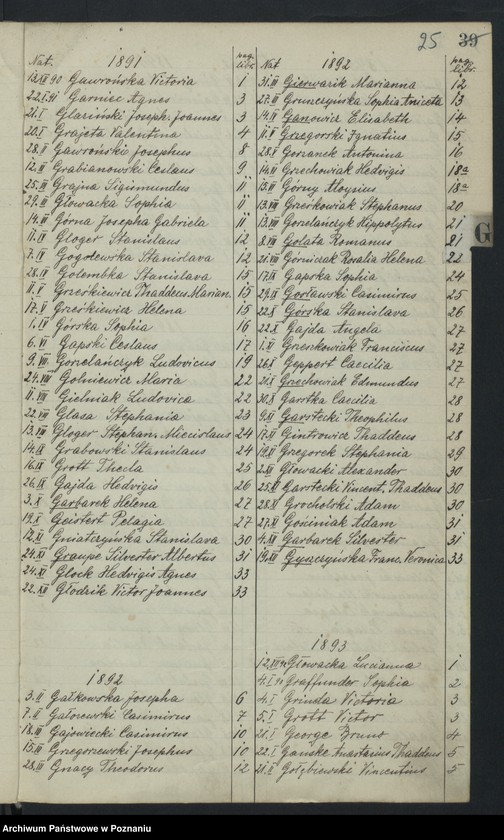 25 39
Nat. 1891 pag. libr.
13.XII 90 Gawrońska Victoria 1
22.I.91 Garniec Agnes 3
21.I Glariński Joseph. Joannes 3
20.I Grajeta Valentina 4
28.II Gawroński Josephus 8
12.III Grabianowski Ceslaus 9
25.III Grajna Sigismundus 11
29.III Głowacka Sophia 11
14.III Górna Josepha Gabriela 11
11.IV Gloger Stanislaus 12
7.IV Gogolewska Stanislava 12
28.IV Golembka Stanislava 15
11.V Grześkiewicz Thaddeus Marian. 15
17.V Grześkiewicz Helena 15
1.IV Górska Sophia 16
6.VI Gapski Ceslaus 17
9.VII Gorzelańczyk Ludovicus 19
24.VIII Golniewicz Maria 22
11.VIII Gielniak Ludovica 22
22.VIII Glaea Stephania 23
13.VIII Gloger Stephan. Miecislaus 24
14.IX Grabowski Stanislaus 24
16.IX Grott Thecla 25
26.IX Gajda Hedvigis 26
3.X Garbarek Helena 27
19.X Geistert Pelagia 27
12.XI Gniatczyńska Stanislava 30
24.XI Graupe Silvester Albertus 31
24.XI Glock Hedvigis Agnes 33
22.XII Głodzik Victor Joannes 33
1892
3.II Gałkowska Josepha 6
7.II Gałozewski Casimirus 7
18.III Gajowiecki Casimirus 10
15.III Grzegorzewski Josephus 10
28.III Gnacy Theodorus 12
Nat 1892 pag. libr.
31.III Gierwarik Marianna 12
27.III Gruszczyńska Sophia Aniceta 13
14.IV Ganowicz Elisabeth 14
11.V Grzegorski Ignatius 15
28.V Gorzanek Antonina 16
14.VI Grzechowiak Hedvigis 18a
13.VI Górny Aloysius 18a
13.VIII Grześkowiak Stephanus 20
13.VIII Gorzelańczyk Hippolytus 21
8.VIII Golata Romanus 21
21.VIII Górniczak Rosalia Helena 22
17.IX Gapska Sophia 24
29.IX Gorławski Casimirus 25
22.X Górska Stanislava 26
22.X Gajda Angela 27
1.X Grzeszkowiak Franciscus 27
26.X Geppert Caecilia 27
21.X Grzechowiak Edmundus 27
30.X Garstka Caecilia 28
9.XI Garstecki Theophilus 28
17.XI Gintrowicz Thaddeus 28
19.XI Grzegorek Stephania 29
2.XII Głowacki Alexander 30
25.XI Garstecki Vincent. Thaddeus 30
28.XI Grocholski Adam 30
27.XI Gościniak Adam 31
4.XII Garbarek Silvester 31
19.XII Gyszczyńska Franc. Veronica 33
1893
12.XII 92 Głowacka Lucianna 1
4.I Graffunder Sophia 2
4.I Grinda Victoria 3
5.I Grott Victor 3
21.I George Bruno 4
22.I Ganske Anastasius Thaddeus 5
21.I Gołębiewski Vincentius 5
G
Archiwum Państwowe w Poznaniu